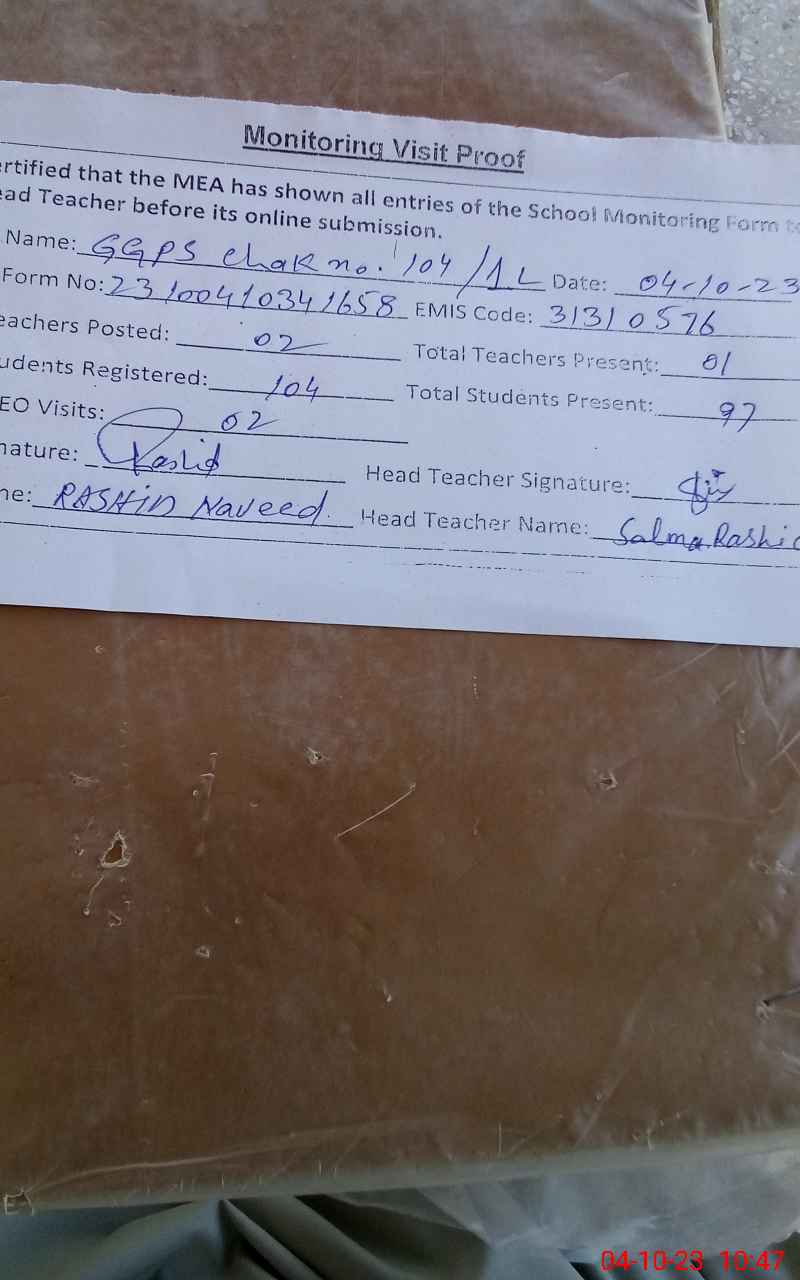 Monitoring Visit Proof
ertified that the MEA has shown all entries of the School Monitoring Form to
ead Teacher before its online submission.
Name: GGPS Chak no. 104/1L Date: 04-10-23
Form No: 23100410341658 EMIS Code: 31310576
eachers Posted: 02 Total Teachers Present: 01
udents Registered: 104 Total Students Present: 97
EO Visits: 02
nature: Rashid Head Teacher Signature:
ne: RASHID Naveed. Head Teacher Name: Salma Rashid
04-10-23 10:47